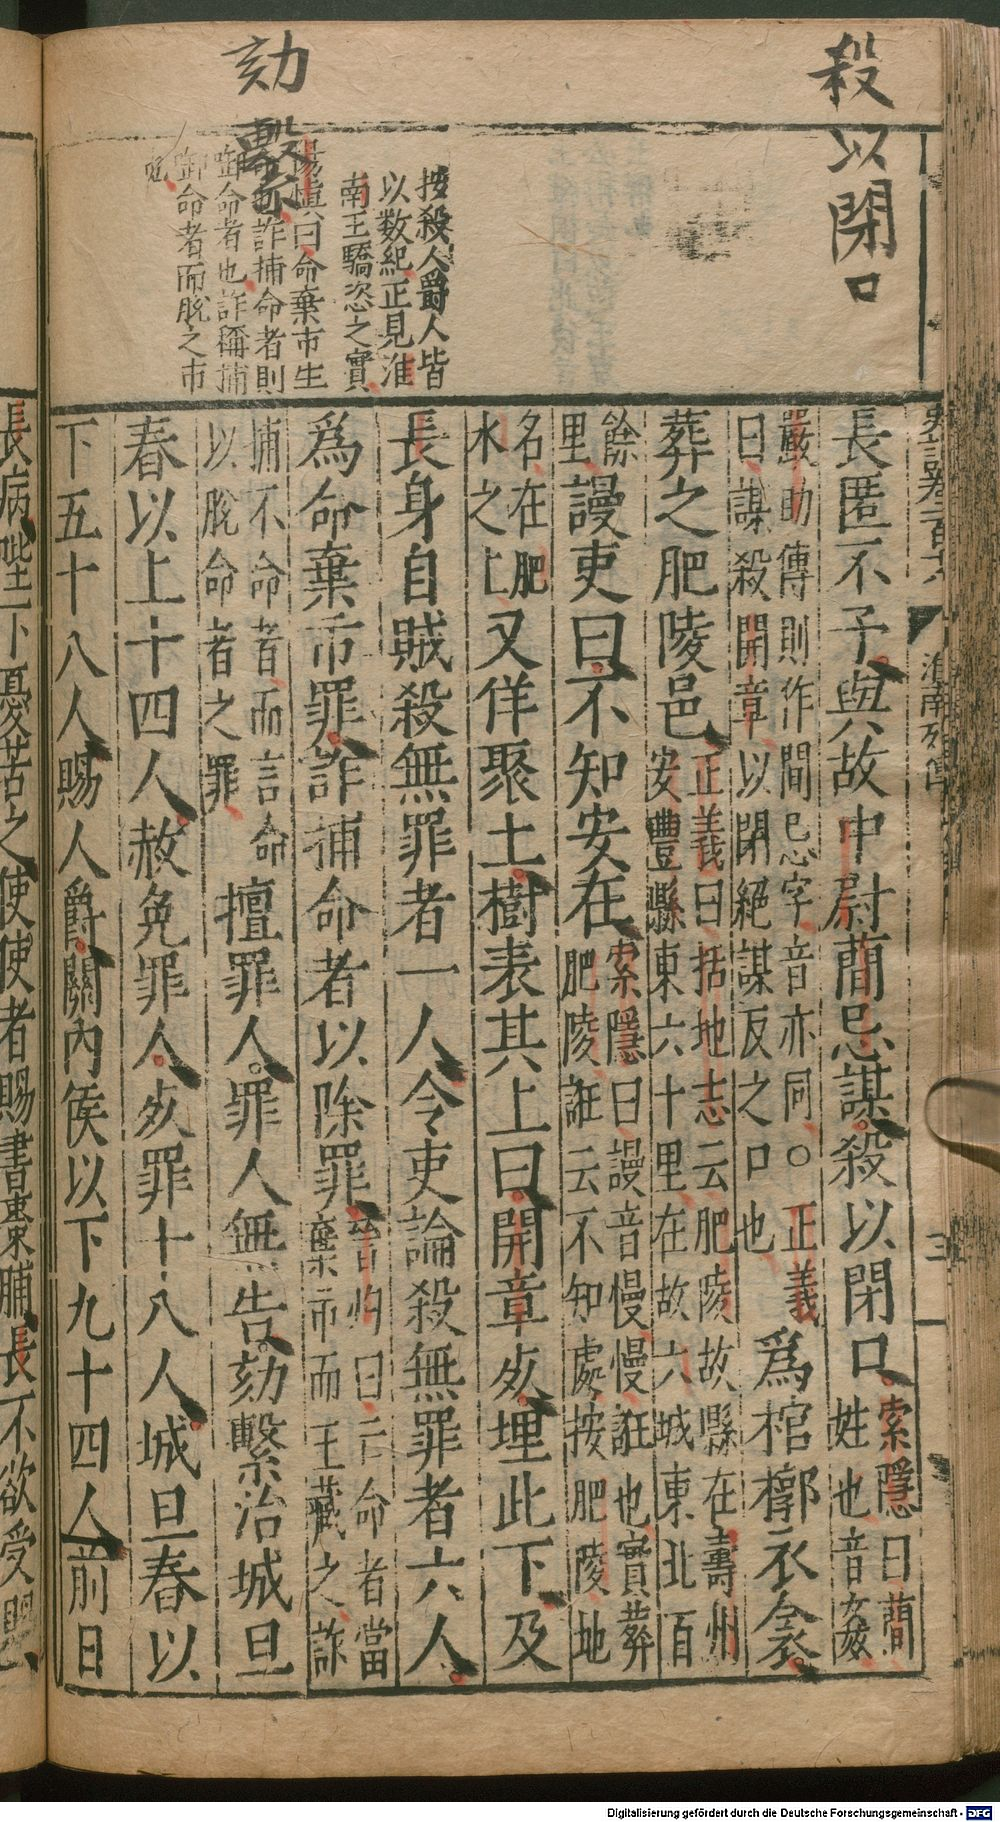 殺以閉口
劾繫
按殺人爵人皆
以數紀正見淮
南王驕恣之實
慎曰命棄市生
詐捕命者則
命者也詐稱捕
命者而脫之市
長匿不予與故中尉蕑忌謀殺以閉口
索隱曰蕑
姓也音姦
嚴助傳則作間忌字音亦同○正義
曰謀殺開章以閉絕謀反之口也
爲棺槨衣衾
葬之肥陵邑
正義曰括地志云肥陵故縣在壽州
安豐縣東六十里在故六城東北百
餘
里
謾吏曰不知安在
索隱曰謾音慢慢誑也實葬
肥陵誑云不知處按肥陵地
名在肥
水之上
又佯聚土樹表其上曰開章死埋此下及
長身自賊殺無罪者一人令吏論殺無罪者六人
爲命棄市罪詐捕命者以除罪
晉灼曰亡命者當
棄市而王藏之詐
捕不命者而言命
以脫命者之罪
擅罪人罪人無告劾繫治城旦
舂以上十四人赦免罪人死罪十八人城旦舂以
下五十八人賜人爵關內侯以下九十四人前日
淮南列傳
三
長病陛下憂苦之使使者賜書棗脯長不欲受賜
Digitalisierung gefördert durch die Deutsche Forschungsgemeinschaft - DFG